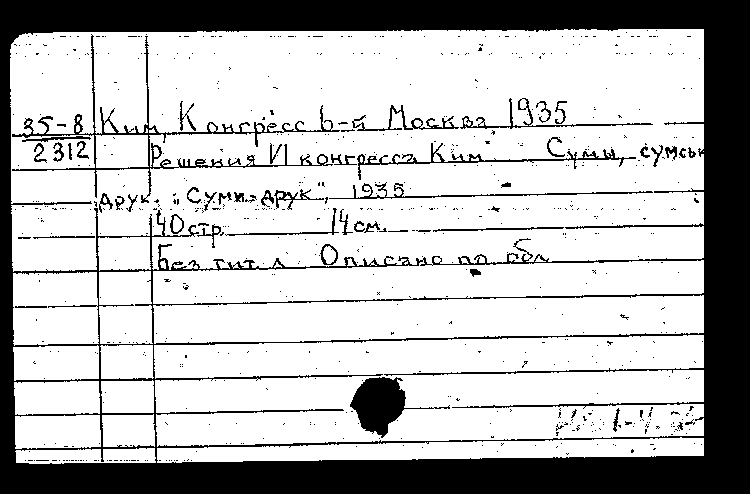 35-8 Ким, Конгресс 6-й Москва, 1935
2312 Решения VI конгресса Ким Сумы, сумськ
друк. „Суми-друк", 1935
40 стр. 14 см.
Без тит. л. Описано по обл.